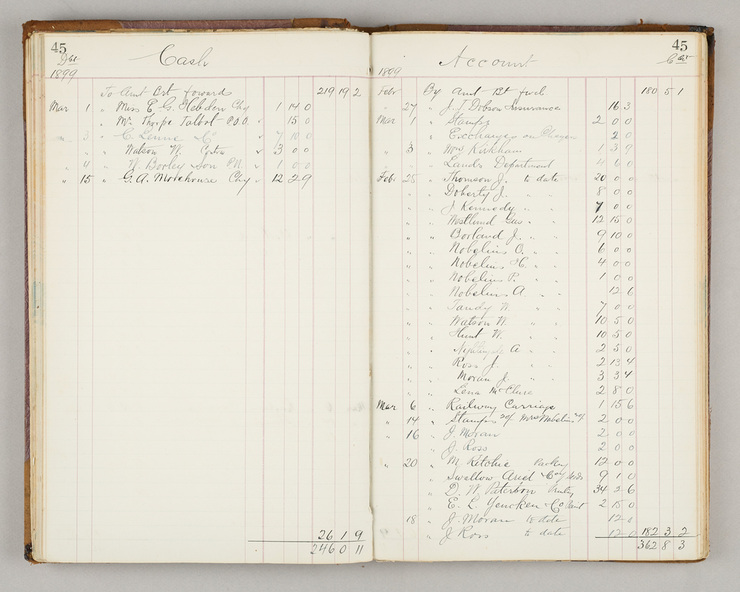 45
Cash
Dbt
1899
To Amt Brt forward 219 19 2
Mar 1 " Miss E G. Hebden Chq 1 14 0
" Mr Thorpe Talbot P.O.O. " 15 0
" 3 " C Lewis " 7 10 0
" " Watson W. " 3 0 0
" 4 " W Booley & Son " 1 0 0
" 15 " G. A. Morehouse Chq " 12 2 9
26 1 9
246 0 11
45
Account
1899
Febr By Amt Bt fwd 180 5 1
" 27 " J. J Dobson Insurance 16 3
Mar 1 " Stamps 2 0 0
" Exchanges on Cheques 2 0
" 3 " Mrs Kirkham 1 3 9
" Lands Department
Feb 25 " Thomson J. to date 20 0 0
" " Doherty J. " " 8 0 0
" " J Kennedy " " 7 0 0
" " Westlund Gus " " 12 15 0
" " Borland J. " " 9 10 0
" " Nobelius C. " " 6 0 0
" " Nobelius H. " " 4 0 0
" " Nobelius P. " " 1 0 0
" " Nobelius A " " 12 6
" " Tandy W. " " 7 0 0
" " Watson W. " " 10 5 0
" " Hunt W. " " 10 5 0
" " A " " 2 5 0
" " Ross J. " " 2 13 4
" " Moran J. " " 3 3 4
" " Lena McClure 2 8 0
Mar 6 " Railway Carriage 1 15 6
" 14 " Stamps Mrs Nobelius 2 0 0
" 16 " J. Moran 2 0 0
" J. Ross 2 0 0
" 20 " M. Ritchie 12 0 0
" Swallow Ariel & Coy Seeds 9 1 0
" D. W Paterson 34 2 6
" E. L Yencken & Co 2 15 0
18 " J. Moran to date 12 0
" J Ross to date 12 0 182 3 2
362 8 3